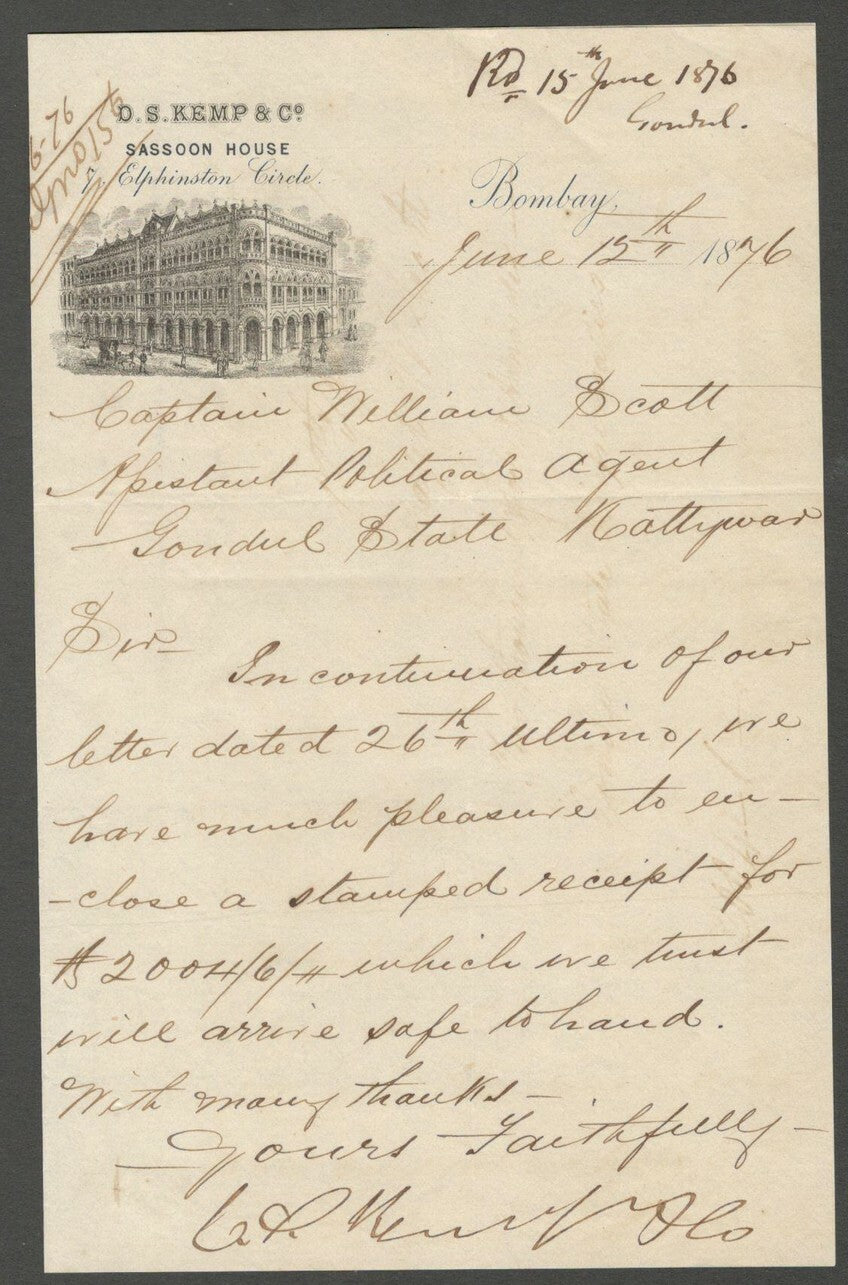 Rd 15th June 1876
Gondul.
D. S. KEMP & Co.
SASSOON HOUSE
7, Elphinston Circle.
Bombay,
June 12th 1876
Captain William Scott
Assistant Political Agent
Gondul State Kattywar
Sir
In continuation of our
letter dated 26th Ultimo, we
have much pleasure to en-
-close a stamped receipt for
Rs 2004/6/" which we trust
will arrive safe to hand.
With many thanks
Yours Faithfully
Kemp & Co